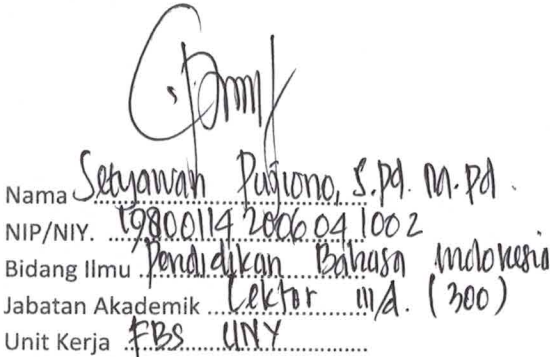 Nama Setyawan Pujiono, S.Pd. M.Pd.
NIP/NIY. 19800114 200604 1002
Bidang Ilmu Pendidikan Bahasa Indonesia
Jabatan Akademik Lektor III/d. (300)
Unit Kerja FBS UNY